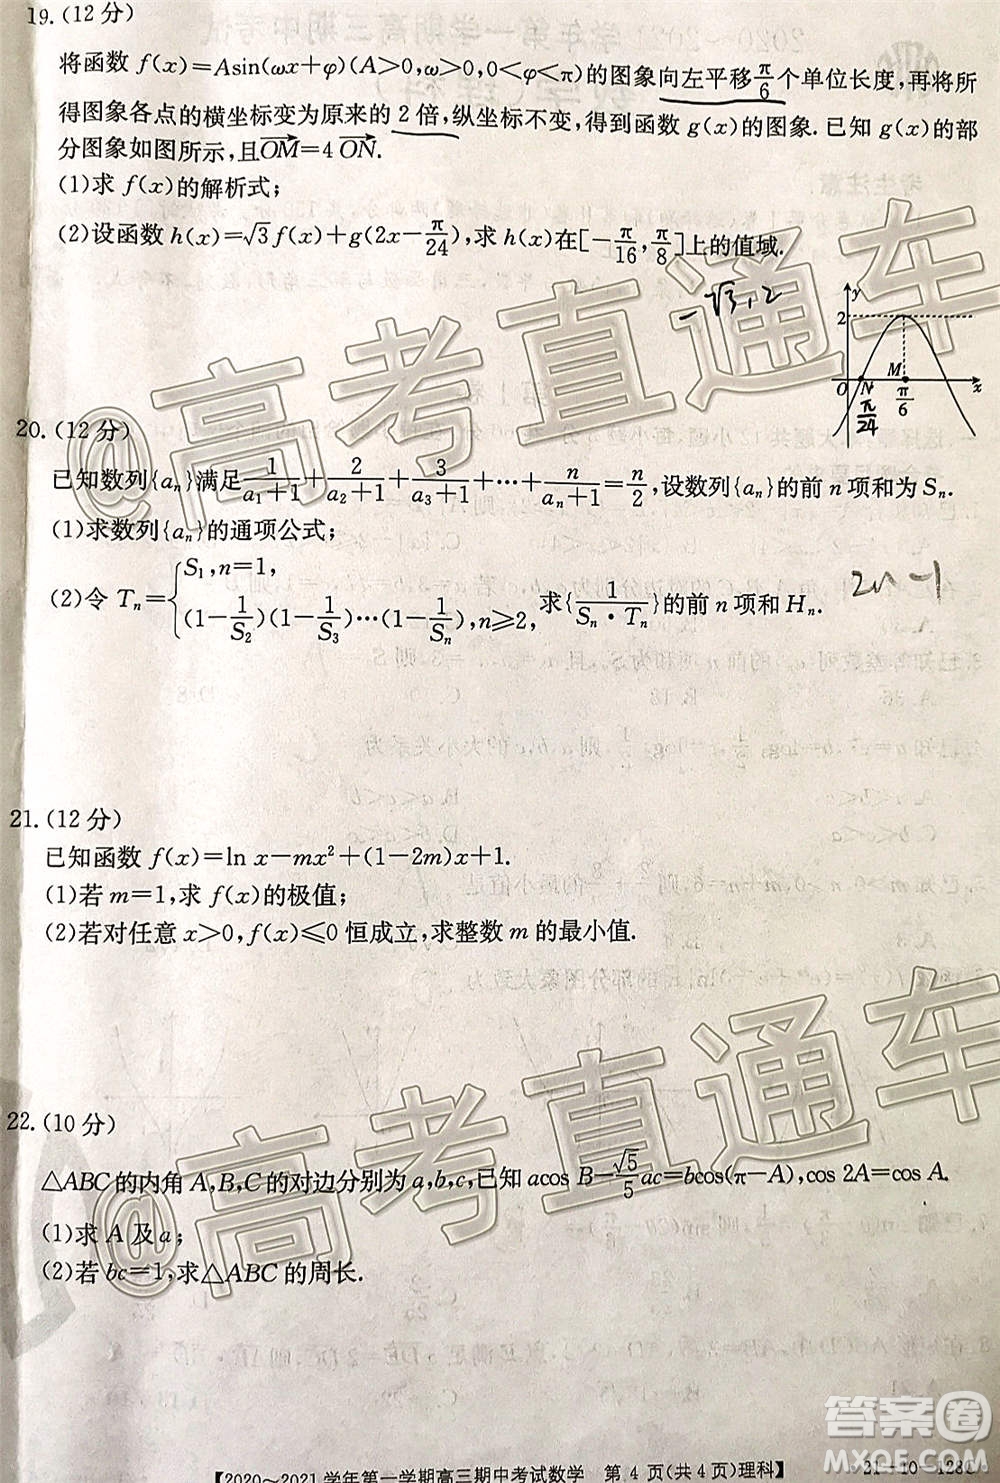 19.(12分)
将函数 f(x)=Asin(ωx+φ)(A>0,ω>0,0<φ<π)的图象向左平移π/6个单位长度,再将所
得图象各点的横坐标变为原来的 2 倍,纵坐标不变,得到函数 g(x)的图象.已知 g(x)的部
分图象如图所示,且OM=4 ON.
(1)求 f(x)的解析式;
(2)设函数 h(x)=√3f(x)+g(2x-π/24),求 h(x)在[-π/16,π/8]上的值域.
-√3,2
y
2
O N M x
π/24 π/6
20.(12分)
已知数列{aₙ}满足1/(a₁+1)+2/(a₂+1)+3/(a₃+1)+…+n/(aₙ+1)=n/2,设数列{aₙ}的前 n 项和为 Sₙ.
(1)求数列{aₙ}的通项公式;
(2)令 Tₙ={S₁,n=1,
(1-1/S₂)(1-1/S₃)…(1-1/Sₙ),n≥2, 求{1/(Sₙ·Tₙ)}的前 n 项和 Hₙ.
2n-1
21.(12分)
已知函数 f(x)=ln x-mx²+(1-2m)x+1.
(1)若 m=1,求 f(x)的极值;
(2)若对任意 x>0,f(x)≤0 恒成立,求整数 m 的最小值.
22.(10分)
△ABC的内角 A,B,C的对边分别为 a,b,c,已知 acos B-√5/5 ac=bcos(π-A),cos 2A=cos A.
(1)求 A 及 a;
(2)若 bc=1,求△ABC 的周长.
【2020～2021学年第一学期高三期中考试数学 第 4 页(共 4 页)理科】
21-10-128C
@高考直通车
@高考直通车
答案圈
MXQE.COM